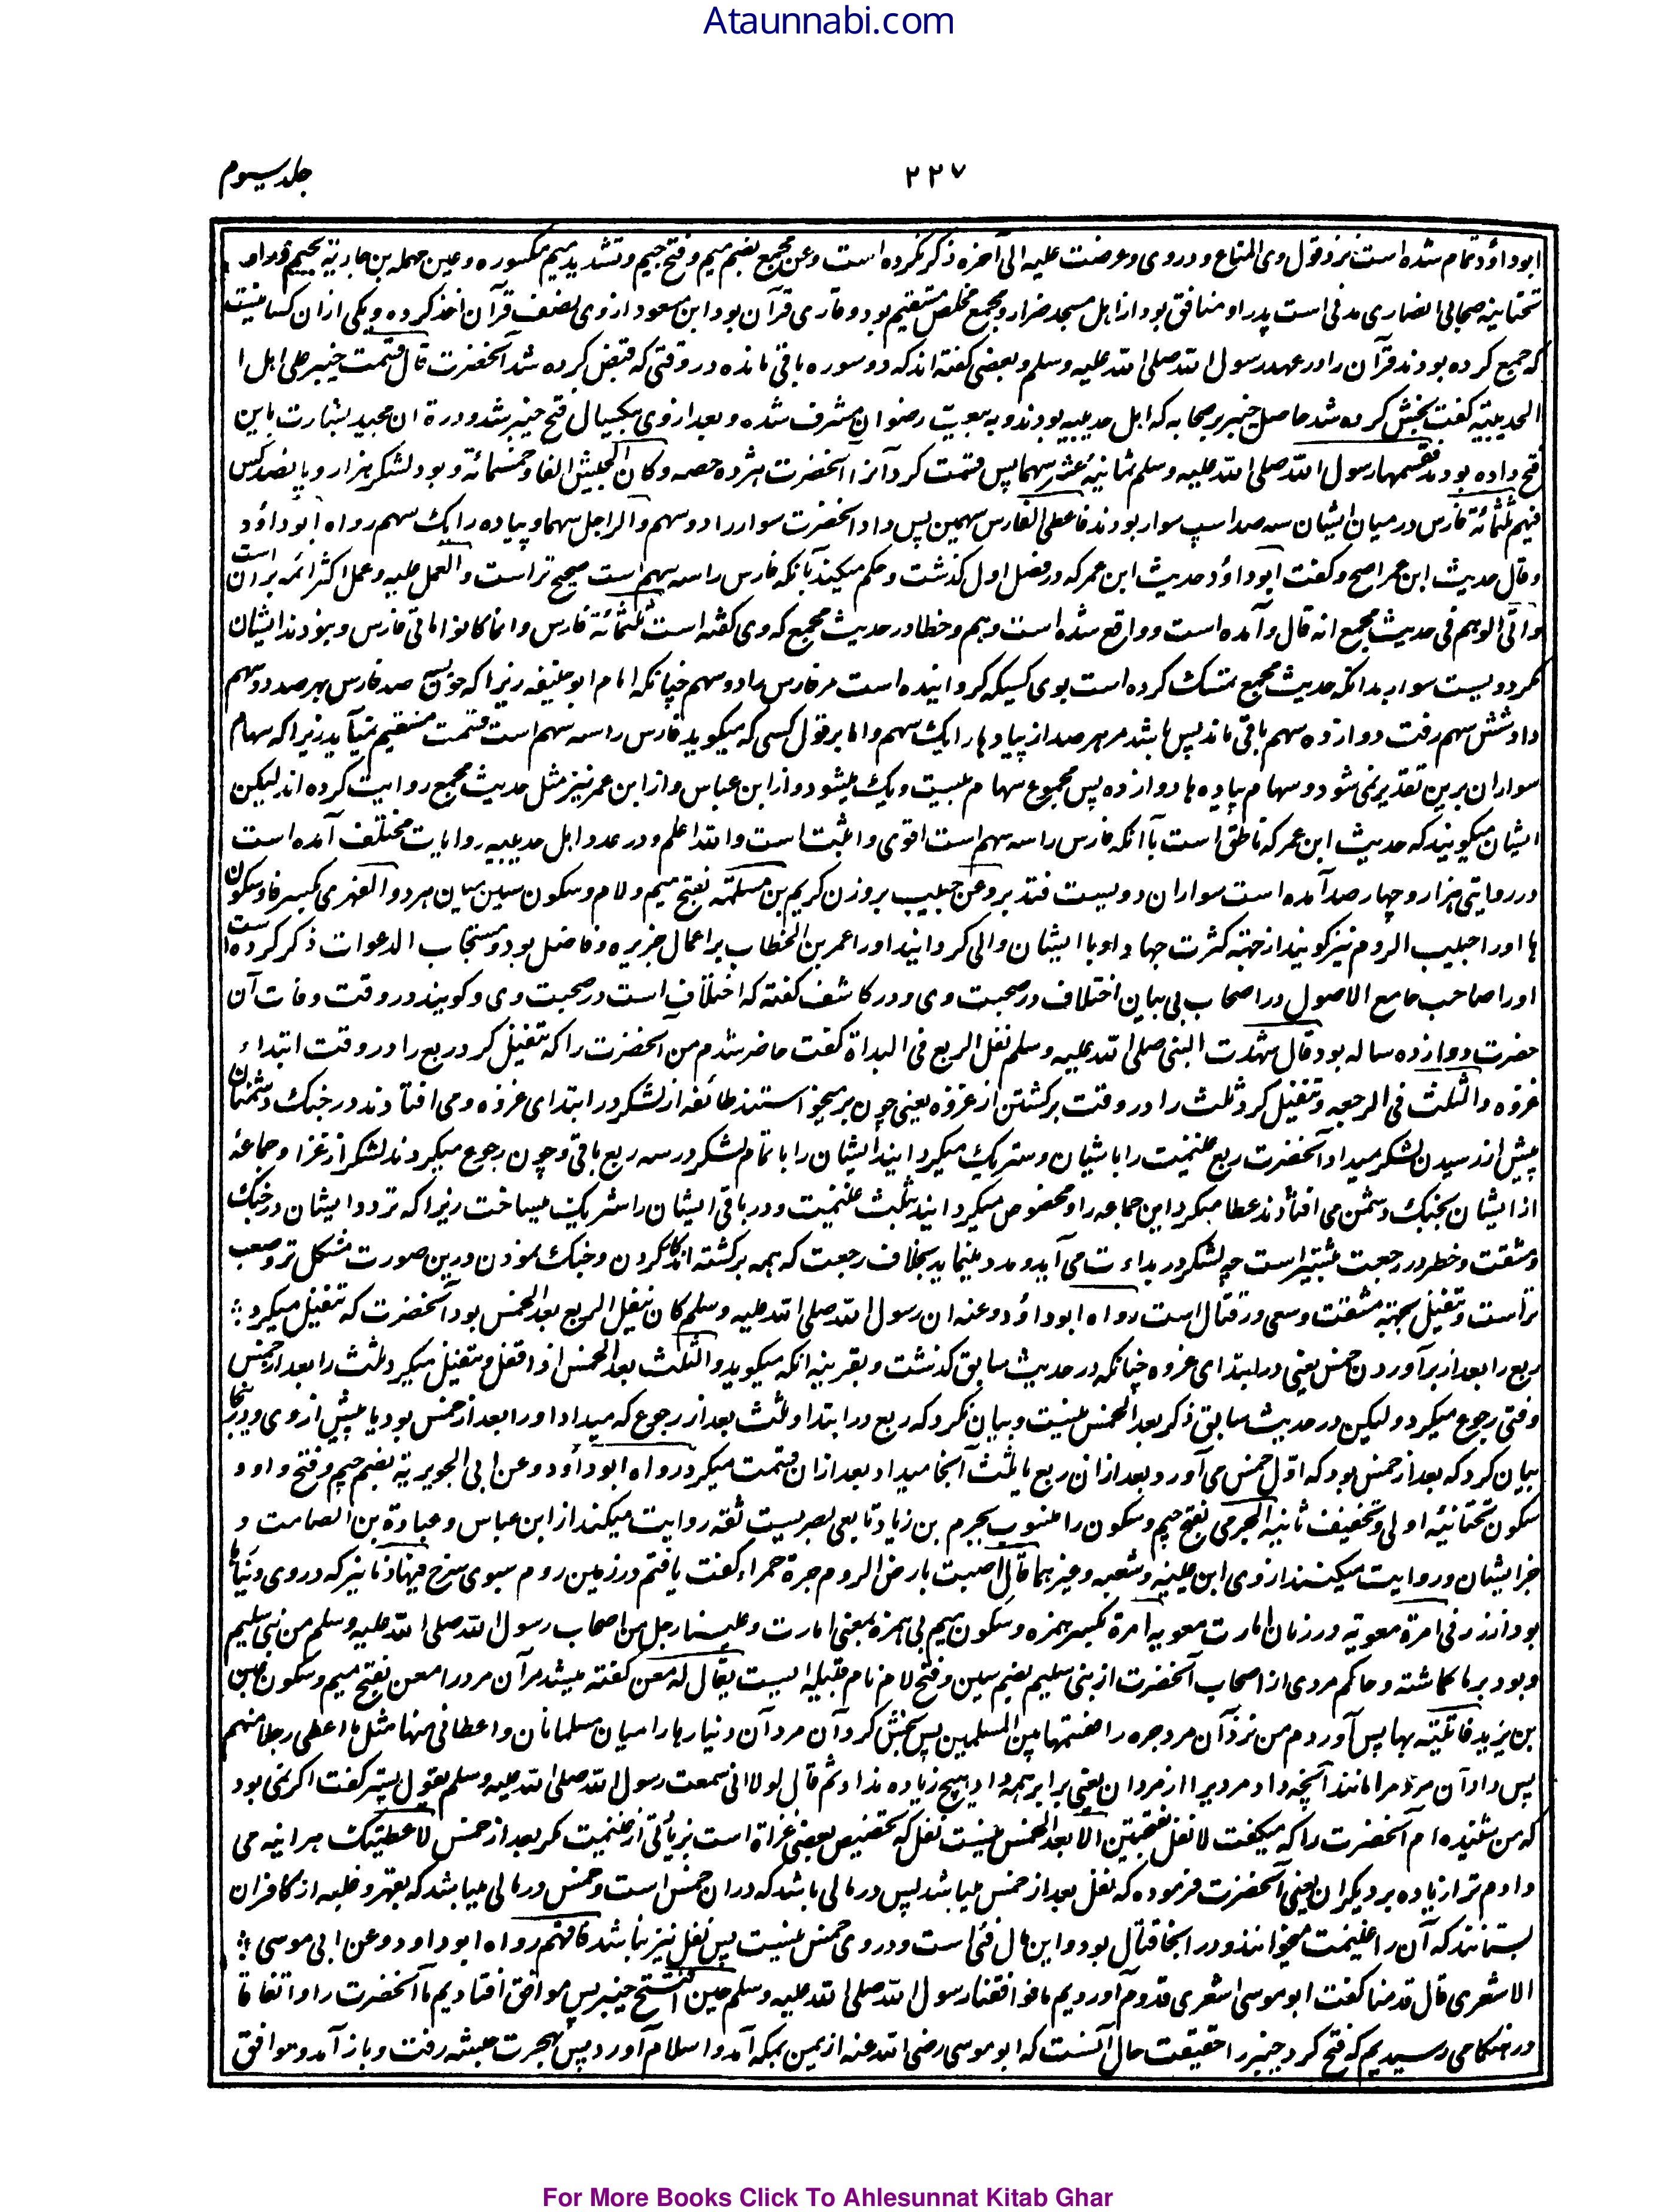 Ataunnabi.com
جلد سیوم
۲۲۷
ابوداؤد تمام شده است نزد قول وی المتاع و دروی وعرضت علیه الی آخره ذکر نکرده است وعن مجمع بضم میم و فتح جیم و تشدید میم مکسوره و عین مهمله بن جاریة بجیم وراء
تحتانیه صحابی انصاری مدنی است پدر او منافق بود از اهل مسجد ضرار و مجمع مخلص مستقیم بود و قاری قرآن بود ابن مسعود از وی نصف قرآن اخذ کرده و یکی ازان کسانیست
که جمع کرده بودند قرآن را در عهد رسول الله صلی الله علیه وسلم و بعضی گفته اند که دو سوره باقی مانده در وقتی که قبض کرده شد آنحضرت قال قسمت خیبر علی اهل ا
الحدیبیة گفت بخش کرده شد حاصل خیبر بر صحابه که اهل حدیبیه بودند و به بیعت رضوان مشرف شده و بعد از وی بیکسال فتح خیبر شد و در قرآن مجید بشارت باین
فتح داده بودند فقسمها رسول الله صلی الله علیه وسلم ثمانیة عشر سهما پس قسمت کرد آنرا آنحضرت هژده حصه وکان الجیش الفا وخمسمائة و بود لشکر هزار و پانصد کس
فیهم ثلثمائة فارس در میان ایشان سه صد اسپ سوار بودند فاعطی الفارس سهمین پس داد آنحضرت سوار را دو سهم والراجل سهما و پیاده را یک سهم رواه ابوداؤد
وقال حدیث ابن عمر اصح و گفت ابوداؤد حدیث ابن عمر که در فصل اول گذشت و حکم میکند بآنکه فارس را سه سهم است صحیح تر است والعمل علیه و عمل اکثر ائمه بران است
واتی الوهم فی حدیث مجمع انه قال و آمده است و واقع شده است وهم و خطا در حدیث مجمع که وی گفته است ثلثمائة فارس وانما کانوا مائتی فارس و نبودند ایشان
مگر دویست سوار بدانکه حدیث مجمع تمسک کرده است بوی کسیکه گردانیده است مر فارس را دو سهم چنانکه امام ابوحنیفه زیرا که چون سه صد فارس بهر صد دو سهم
داد شش سهم رفت دوازده سهم باقی ماند پس باشد مر هر صد از پیادها را یک سهم و اما بر قول کسی که میگوید فارس را سه سهم است قسمت مستقیم نمی آید زیرا که سهام
سواران برین تقدیر نه می شود و سهام پیاده ها دوازده پس مجموع سهام بیست و یک میشود و از ابن عباس و از ابن عمر نیز مثل حدیث مجمع روایت کرده اند لیکن
ایشان میگویند که حدیث ابن عمر که ناطق است بآنکه فارس را سه سهم است اقوی واثبت است والله اعلم و در عدد اهل حدیبیه روایات مختلف آمده است
در روایتی هزار و چهار صد آمده است سواران دویست فتدبر وعن حبیب بروزن کریم بن مسلمة بفتح میم ولام و سکون سین میان هر دو الفهری بکسر فا و سکون
ها او را حبیب الروم نیز گویند از جهت کثرت جهاد او با ایشان والی گردانید او را عمر بن الخطاب بر اعمال جزیره و فاضل بود و مستجاب الدعوات ذکر کرده است
او را صاحب جامع الاصول در اصحاب بی بیان اختلاف در صحبت وی و در کاشف گفته که اختلاف است در صحبت وی و گویند در وقت وفات آن
حضرت دوازده ساله بود قال شهدت النبی صلی الله علیه وسلم نفل الربع فی البداة گفت حاضر شدم من آنحضرت را که تنفیل کرد ربع را در وقت ابتداء
غزوه والثلث فی الرجعه و تنفیل کرد ثلث را در وقت برگشتن از غزوه یعنی چون برمیخواستند طائفه از لشکر در ابتدای غزوه و می افتادند در جنگ دشمنان
پیش از رسیدن لشکر میداد آنحضرت ربع غنیمت را باشیان و شریک میگردانید ایشان را با تمام لشکر در سه ربع باقی و چون رجوع میکردند لشکر از غزا و جماعۀ
از ایشان بجنگ دشمن می افتادند عطا میکرد این جماعه را و مخصوص میگردانید بثلث غنیمت و در باقی ایشان را شریک میساخت زیرا که تردد ایشان در جنگ
و مشقت و خطر در رجعت بیشتر است چه لشکر در بداءت می آید و مدد مینماید بخلاف رجعت که همه برگشته اند کار کردن و جنگ نمودن درین صورت مشکل تر و صعب
تر است و تنفیل بجهة مشقت و سعی در قتال است رواه ابوداؤد وعنه ان رسول الله صلی الله علیه وسلم کان ینفل الربع بعد الخمس بود آنحضرت که تنفیل میکرد ؛
ربع را بعد از برآوردن خمس یعنی در ابتدای غزوه چنانکه در حدیث سابق گذشت و بقرینه آنکه میگوید والثلث بعد الخمس اذا قفل و تنفیل میکرد ثلث را بعد از خمس
وقتی رجوع میکرد ولیکن در حدیث سابق ذکر بعد الخمس نیست و بیان نکرد که ربع در ابتدا و ثلث بعد از رجوع که میداد او را بعد از خمس بود یا پیش از وی و درینجا
بیان کرد که بعد از خمس بود که اول خمس می آورد و بعد ازان ربع یا ثلث آنجا میداد بعد ازان قسمت میکرد رواه ابوداؤد وعن ابی الجویریة بضم جیم و فتح واو و
سکون تحتانیه اولی و تخفیف ثانیه الجرمی بفتح جیم و سکون را منسوب بجرم بن زیاد تابعی بصریست ثقه روایت میکند از ابن عباس و عبادة بن الصامت و
جز ایشان و روایت میکنند از وی ابن عیینه و شعبه و غیرهما قال اصبت بارض الروم جرة حمراء گفت یافتم در زمین روم سبوی سرخ فیها دنانیر که در وی دنیارها
بود از زر فی امرة معویة در زمان امارت معویه امرة بکسر همزه و سکون میم بی همزه بمعنی امارت وعلینا رجل من اصحاب رسول الله صلی الله علیه وسلم من بنی سلیم
و بود بر ما گماشته و حاکم مردی از اصحاب آنحضرت از بنی سلیم بضم سین و فتح لام نام قبیله ایست یقال له معن گفته میشد مر آن مرد را معن بفتح میم و سکون عین
بن یزید فاتیته بها پس آوردم من نزد آن مرد جره را فقسمها بین المسلمین پس بخش کرد آن مرد آن دنیارها را میان مسلمانان واعطانی منها مثل ما اعطی رجلا منهم
پس داد آن مرد مرا مانند آنچه داد مردیرا از مردان یعنی برابر همه داد هیچ زیاده نداد ثم قال لولا انی سمعت رسول الله صلی الله علیه وسلم یقول پستر گفت اگر نمی بود
که من شنیده ام آنحضرت را که میگفت لا نفل الا بعد الخمس نیست نفل که تخصیص بعضی غزاة است بزیادتی از غنیمت مگر بعد از خمس لاعطیتک هر آینه می
دادم ترا زیاده بر دیگران یعنی آنحضرت فرموده که نفل بعد از خمس میباشد پس در مالی باشد که دران خمس است و خمس در مالی میباشد که بقهر و غلبه از کافران
بستانند که آن را غنیمت میخوانند و در اینجا قتال نبود و این مال فئ است و در وی خمس نیست پس نفل نیز نباشد فافهم رواه ابوداود وعن ابی موسی ؛
الاشعری قال قدمنا گفت ابوموسی اشعری قدوم آوردیم ما فوافقنا رسول الله صلی الله علیه وسلم حین افتتح خیبر پس موافق افتادیم ما آنحضرت را و اتفاقا
در هنگامی رسیدیم که فتح کرد خیبر را حقیقت حال آنست که ابوموسی رضی الله عنه از یمن بمکه آمد و اسلام آورد پس هجرت حبشه رفت و باز آمد و موافق
For More Books Click To Ahlesunnat Kitab Ghar